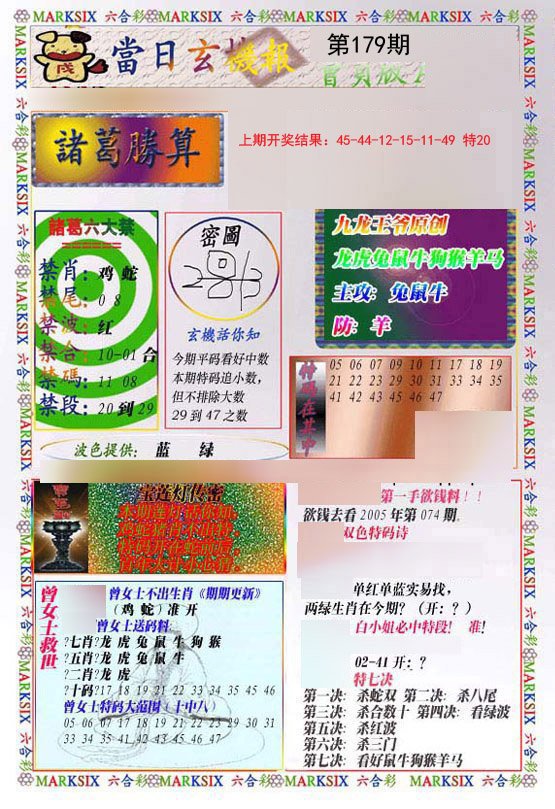 MARKSIX 六合彩 MARKSIX 六合彩 MARKSIX 六合彩 MARKSIX 六合彩
當日玄機報
第179期
諸葛勝算
上期开奖结果：45-44-12-15-11-49 特20
諸葛六大禁
禁肖：鸡 蛇
禁尾：0 8
禁波：红
禁合：10-01 合
禁碼：11 08
禁段：20 到 29
密圖
玄機話你知
今期平码看好中数
本期特码追小数，
但不排除大数
29 到 47 之数
九龙王爷原创
龙虎兔鼠牛狗猴羊马
主攻：兔鼠牛
防：羊
特码在其中
05 06 07 09 10 11 17 18 19
21 22 23 29 30 31 33 34 35
41 42 43 45 46 47
波色提供： 蓝 绿
宝莲灯传密
第一手欲钱料！！
欲钱去看 2005 年第 074 期.
双色特码诗
单红单蓝实易找，
两绿生肖在今期？（开：？）
白小姐必中特段！ 准！
02-41 开：？
特七决
第一决：杀蛇双 第二决：杀八尾
第三决：杀合数十 第四决：看绿波
第五决：杀红波
第六决：杀三门
第七决：看好鼠牛狗猴羊马
曾女士救世
曾女士不出生肖《期期更新》
（鸡 蛇）准 开
曾女士送码料
?七肖?龙 虎 兔 鼠 牛 狗 猴
?五肖?龙 虎 兔 鼠 牛
?二肖?龙 虎
?十码?17 18 19 21 22 33 34 35 45 46
曾女士特码大范围（十中八）
05 06 07 17 18 19 21 22 23 29 30 31
33 34 35 41 42 43 45 46 47
MARKSIX 六合彩 MARKSIX 六合彩 MARKSIX 六合彩 MARKSIX 六合彩